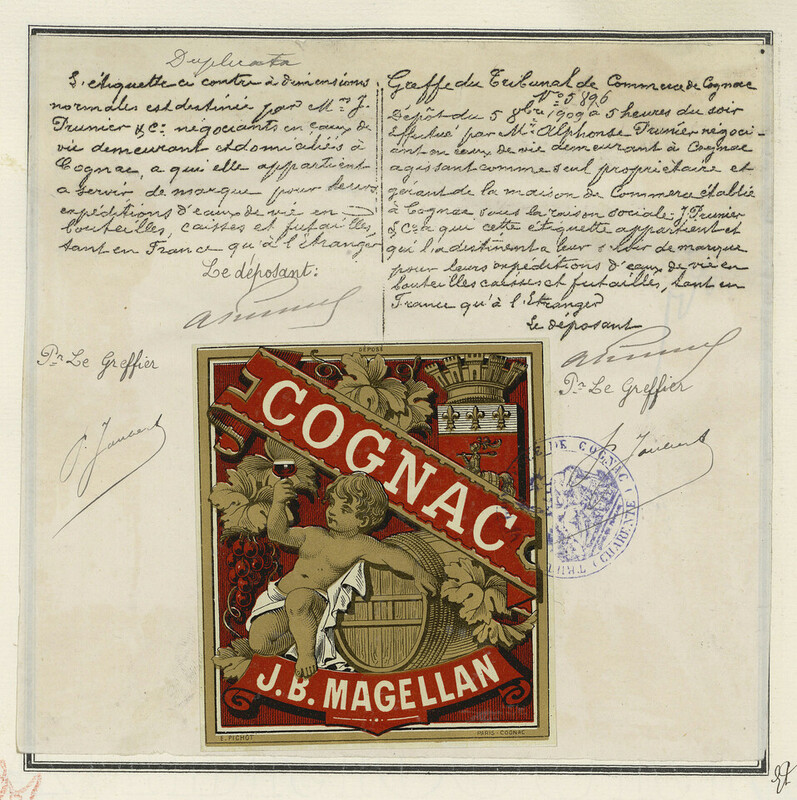 Duplicata
L'étiquette ci contre à dimensions
normales est destinée par Mrs J.
Prunier & Cie négociants en eaux de
vie demeurant et domiciliés à
Cognac, a qui elle appartient
a servir de marque pour leurs
expéditions d'eaux de vie en
bouteilles, caisses et futailles,
tant en France qu'à l'étranger
Le déposant:
Pr Le Greffier
Greffe du Tribunal de Commerce de Cognac
No 5.896
Dépôt du 5 8bre 1909 à 5 heures du soir
Effectué par Mr Alphonse Prunier négoci-
ant en eaux de vie demeurant à Cognac
agissant comme seul propriétaire et
gérant de la maison de Commerce établie
à Cognac sous la raison sociale: J. Prunier
& Cie a qui cette étiquette appartient et
qui la destinent a leur servir de marque
pour leurs expéditions d'eaux de vie en
bouteilles caisses et futailles, tant en
France qu'à l'Etranger
Le déposant
Pr Le Greffier
DÉPOSÉ
COGNAC
J.B. MAGELLAN
E. PICHOT
PARIS-COGNAC
DE COGNAC
(CHARENTE)